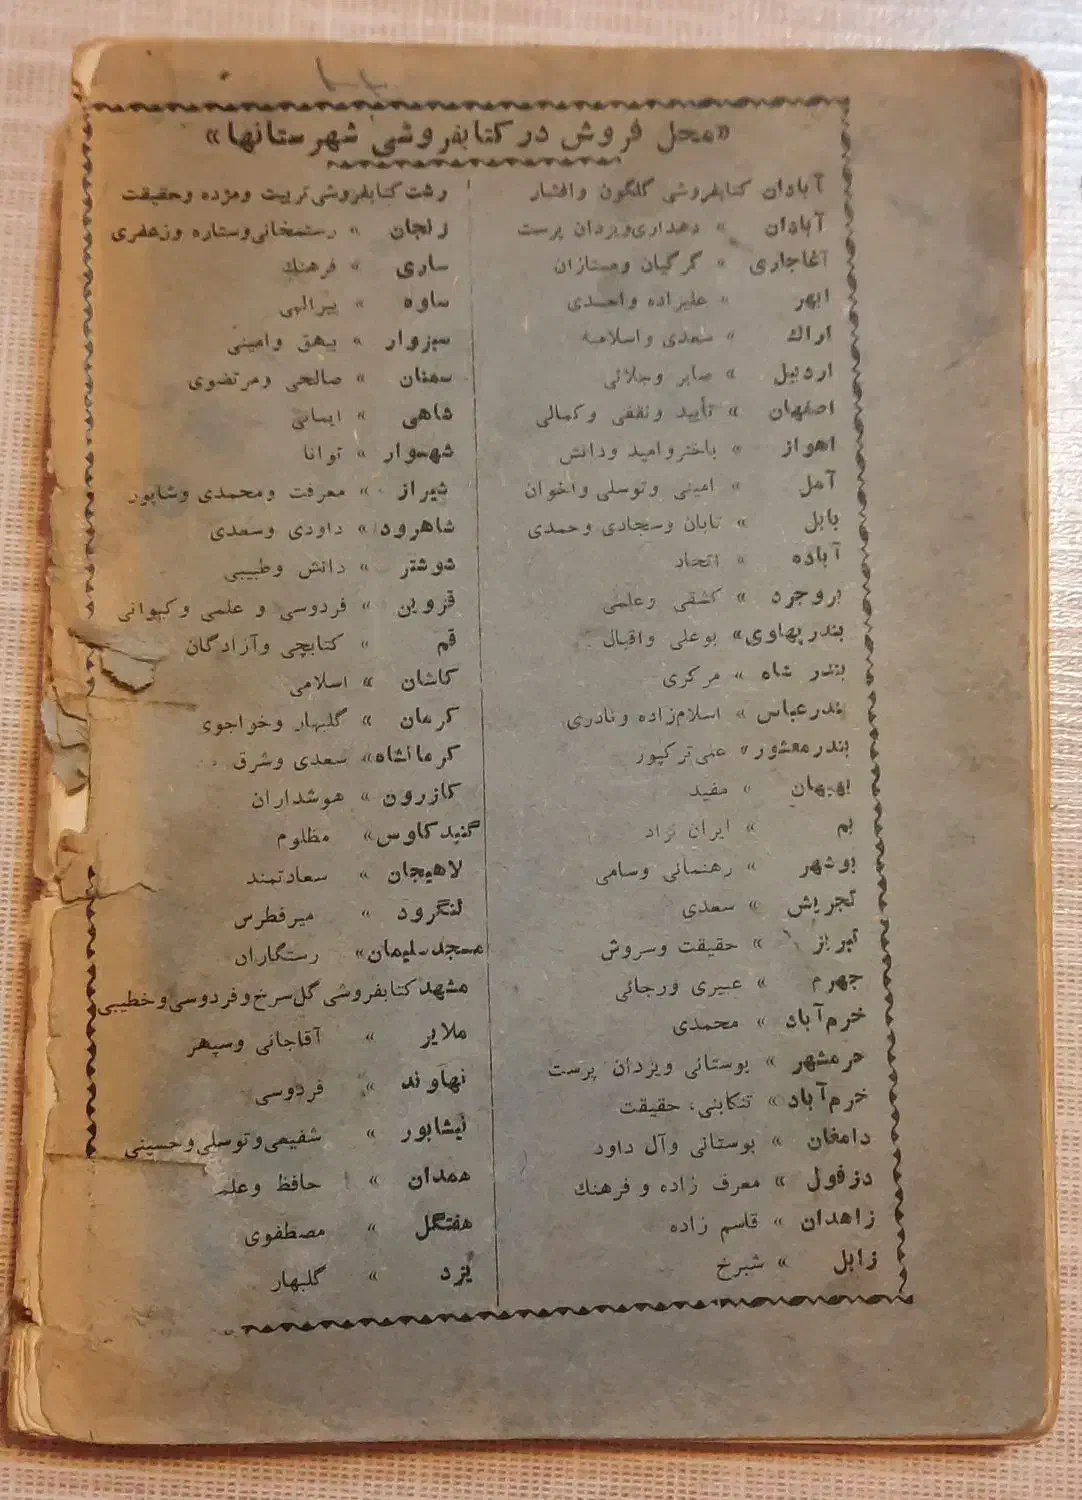 «محل فروش در کتابفروشی شهرستانها»
آبادان کتابفروشی گلگون وافشار
آبادان » دهداری ویزدان پرست
آغاجاری » گرگیان وممتازان
ابهر » علیزاده واحمدی
اراك » سعدی واسلامیه
اردبیل » صابر وجلائی
اصفهان » تأیید وثقفی وکمالی
اهواز » باختر وامید ودانش
آمل » امینی وتوسلی واخوان
بابل » تابان وسجادی وحمدی
آباده » اتحاد
بروجرد » کشفی وعلمی
بندرپهلوی » بوعلی واقبال
بندر شاه » مرکزی
بندرعباس » اسلام‌زاده ونادری
بندرمعشور » علی ترکپور
بهبهان » مفید
بم » ایران نژاد
بوشهر » رهنمائی وسامی
تجریش » سعدی
تبریز » حقیقت وسروش
جهرم » عبیری ورجائی
خرم‌آباد » محمدی
خرمشهر » بوستانی ویزدان پرست
خرم‌آباد » تنکابنی، حقیقت
دامغان » بوستانی وآل داود
دزفول » معرف زاده و فرهنك
زاهدان » قاسم زاده
زابل » شبرخ
رشت کتابفروشی تربیت ومژده وحقیقت
زنجان » رستمخانی وستاره وزعفری
ساری » فرهنك
ساوه » پیرالهی
سبزوار » بیهق وامینی
سمنان » صالحی ومرتضوی
شاهی » ایمانی
شهسوار » توانا
شیراز » معرفت ومحمدی وشاپور
شاهرود » داودی وسعدی
شوشتر » دانش وطبیبی
قزوین » فردوسی و علمی وکیوانی
قم » کتابچی وآزادگان
کاشان » اسلامی
کرمان » گلبهار وخواجوی
کرمانشاه » سعدی وشرق
کازرون » هوشداران
گنبدکاوس » مظلوم
لاهیجان » سعادتمند
لنگرود » میرفطرس
مسجدسلیمان » رستگاران
مشهد کتابفروشی گل‌سرخ وفردوسی وخطیبی
ملایر » آقاجانی وسپهر
نهاوند » فردوسی
نیشابور » شفیعی وتوسلی وحسینی
همدان » حافظ وعلم
هفتگل » مصطفوی
یزد » گلبهار